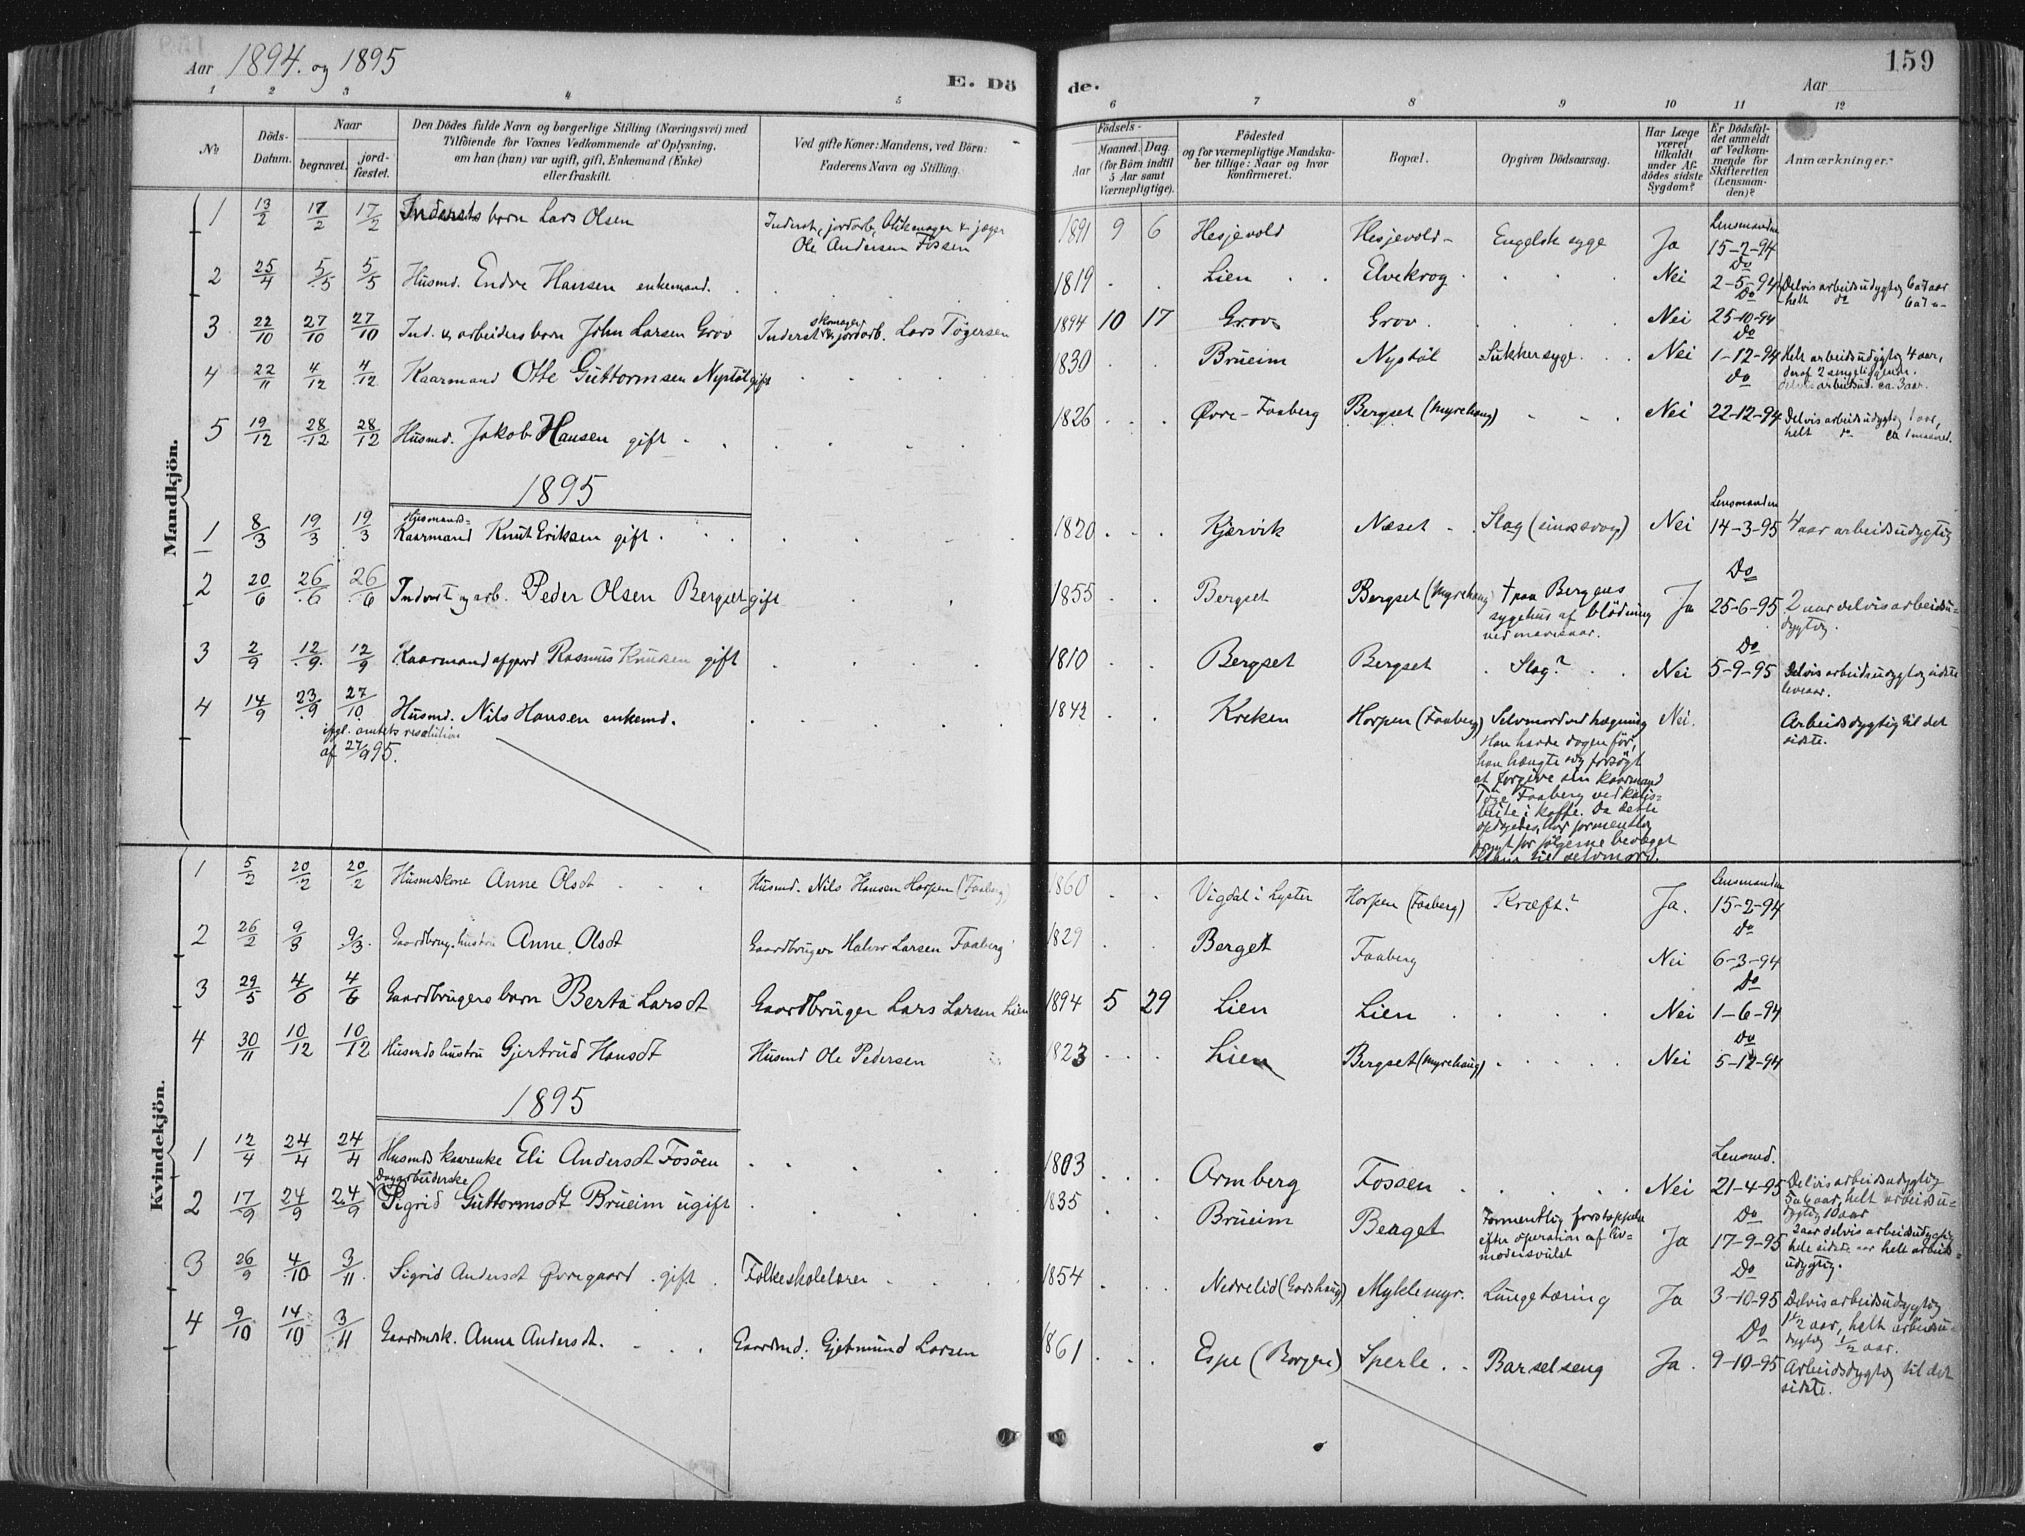 Aar 1894. og 1895
E. Dö
de.
Aar
159
1 2 3 4 5 6 7 8 9 10 11 12
No
Döds-Datum.
Naar
begravet.
jordfæstet.
Den Dödes fulde Navn og borgerlige Stilling (Næringsvei) med
Tilföiende for Voxnes Vedkommende af Oplysning,
om han (hun) var ugift, gift, Enkemand (Enke)
eller fraskilt.
Ved gifte Koner: Mandens, ved Börn:
Faderens Navn og Stilling.
Födsels-
Aar
Maaned. Dag
(for Börn indtil
5 Aar samt
Værnepligtige).
Födested
og for værnepligtige Mandskaber tillige: Naar og hvor
konfirmeret.
Bopæl.
Opgiven Dödsaarsag.
Har Læge
været
tilkaldt
under Afdödes sidste
Sygdom?
Er Dödsfaldet anmeldt
af Vedkommende for
Skifteretten
(Lensmanden)?
Anmærkninger.
Mandkjön.
1 13/2 17/2 17/2 Inderstsbarn Lars Olsen Inderst, jordarb., & jæger Ole Andersen Fossen 1891 9 6 Hesjevold Hesjevold Engelsk syge Ja Lensmanden 15-2-94
2 25/4 5/5 5/5 Husmd. Endre Hansen enkemand. 1819 Lien Elvekrog Nei Do 2-5-94 Delvis arbeidsudygtig 6 a 7 aar helt do 6 a 7
3 22/10 27/10 27/10 Ind. & arbeiders barn John Larsen Grov Inderst skomager & jordarb. Lars Togersen 1894 10 17 Grov Grov Nei Do 25-10-94
4 22/11 4/12 4/12 Kaarmand Otte Guttormsen Nystøl gift 1830 Brueim Nystøl Sukkersyge Nei Do 1-12-94 Helt arbeidsudygtig 4 aar, deraf 2 sengeliggende. delvis arbeidsud. ca. 3 aar.
5 19/12 28/12 28/12 Husmd. Jakob Hansen gift 1826 Øvre-Faaberg Bergset (Myrehaug) Nei Do 22-12-94 Delvis arbeidsudygtig 1 aar, helt do ca 1 maaned.
1895
1 8/3 19/3 19/3 Husmands-Kaarmand Knut Eriksen gift 1820 Kjærvik Næset Slag Nei Lensmanden 14-3-95 4 aar arbeidsudygtig
2 20/6 26/6 26/6 Inderst og arb. Peder Olsen Bergset gift 1855 Bergset Bergset (Myrehaug) † paa Bergens sygehus af blödning ved mavesaar. Ja Do 25-6-95 2 aar delvis arbeidsudygtig.
3 2/9 12/9 12/9 Kaarmand afgaard Rasmus Knuisen gift 1810 Bergset Bergset Slag? Nei Do 5-9-95 Delvis arbeidsudygtig sidste leveaar.
4 14/9 23/9 27/10 Husmd. Nils Hansen enkemd. 1842 Kreken Horpen (Faaberg) Selvmord ved hægning Nei. Arbeidsdygtig til det sidste.
ifgl. amtets resolution
af 27/9 95.
Han havde dagen før,
han hængte sig forsögt
at forgive sin kaarmand
Faaberg ved
i kaffe. Da dette
opdagedes, har formentlig
frygt for fölgerne bevæget
ham til selvmord.
Kvindekjön.
1 5/2 20/2 20/2 Husmkone Anne Olsdt Husmd. Nils Hansen Horpen (Faaberg) 1860 Vigdal i Lyster Horpen (Faaberg) Kræft? Ja. Lensmanden 15-2-94
2 26/2 9/3 9/3 Gaardbrug. hustru Anne Olsdt Gaardbruger Halvor Larsen Faaberg 1829 Berget Faaberg Nei Do 6-3-94
3 29/5 4/6 4/6 Gaardbrugers barn Berta Larsdt Gaardbruger Lars Larsen Lien 1894 5 29 Lien Lien Nei Do 1-6-94
4 30/11 10/12 10/12 Husmds hustru Gjertrud Hansdt Husmd Ole Pedersen 1823 Lien Bergset (Myrehaug) Nei Do 5-12-94
1895
1 12/4 24/4 24/4 Husmds kaarenke Eli Andersdt Fosöen 1803 Ormberg Fossen Nei Lensmd. 21-4-95 Delvis arbeidsudygtig 5 a 6 aar, helt arbeidsudygtig 10 aar
2 17/9 24/9 24/9 Dagarbuderske Sigrid Guttormsdt Brueim ugift 1835 Brueim Berget Formentlig forstoppelse efter operation af livmodersvulst Ja Do 17-9-95 2 aar delvis arbeidsudygtig hele sidste aar helt arbeidsudygtig.
3 26/9 4/10 3/11 Sigrid Andersdt Øvregaard gift Folkeskolelærer 1854 Nedrelid (Gardshaug) Myklemyr. Lungetæring Ja Do 3-10-95 Delvis arbeidsudygtig 1 1/2 aar, helt arbeidsudygtig 1/2 aar.
4 9/10 14/10 3/11 Gaardmsk. Anna Andersdt. Gaardmd. Gjetmund Larsen 1861 Espe (Borgen) Sperle Barselseng Ja Do 9-10-95 Arbeidsdygtig til det sidste.